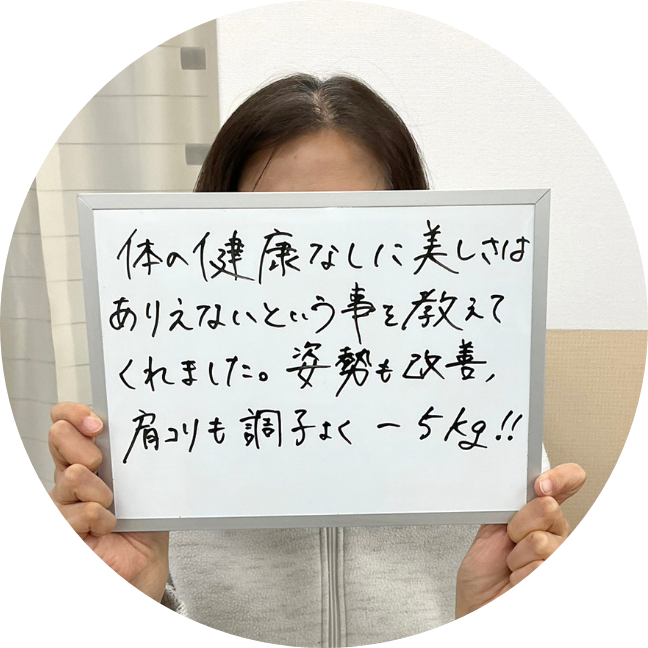 体の健康なしに美しさは
ありえないという事を教えて
くれました。姿勢も改善,
肩コリも調子よく −5kg!!